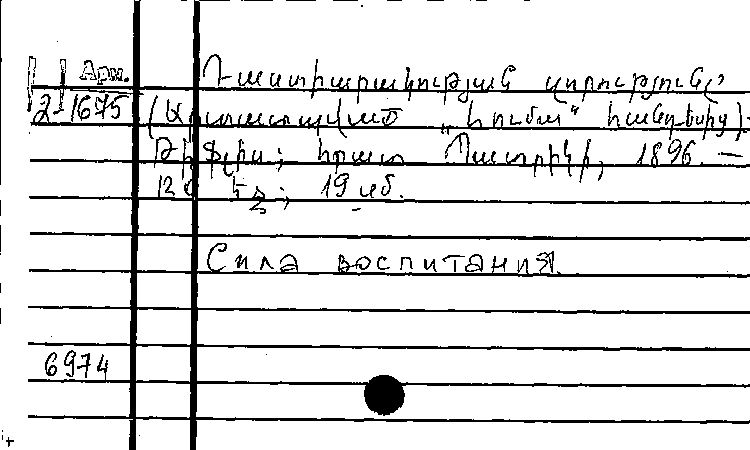 Арм.
2-1675
Դաստիարակության զորությունը
(Արտատպված „Նումա“ հանդեսից).
Թիֆլիս; հրատ 1896. —
12° եզ; 19 սմ.
Сила воспитания
6974